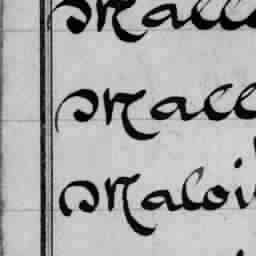 Malle
Mall
Maloi